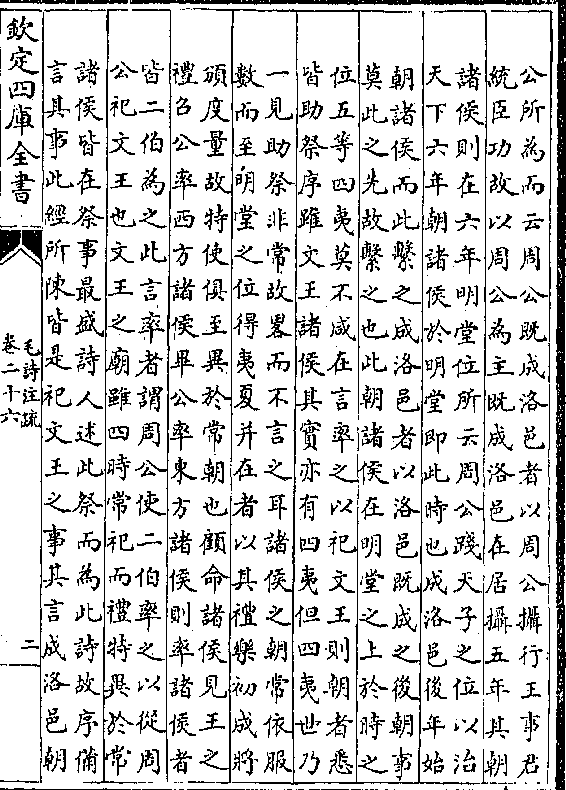 公所為而云周公既成洛邑者以周公攝行王事君
統臣功故以周公為主既成洛邑在居攝五年其朝
諸侯則在六年明堂位所云周公踐天子之位以治
天下六年朝諸侯於明堂即此時也成洛邑後年始
朝諸侯而此繫之成洛邑者以洛邑既成之後朝事
莫此之先故繫之也此朝諸侯在明堂之上於時之
位五等四夷莫不咸在言率之以祀文王則朝者悉
皆助祭序雖文王諸侯其實亦有四夷但四夷世乃
一見助祭非常故畧而不言之耳諸侯之朝常依服
數而至明堂之位得夷夏并在者以其禮樂初成將
頒度量故特使俱至異於常朝也顧命諸侯見王之
禮召公率西方諸侯畢公率東方諸侯則率諸侯者
皆二伯為之此言率者謂周公使二伯率之以從周
公祀文王也文王之廟雖四時常祀而禮特異於常
諸侯皆在祭事最盛詩人述此祭而為此詩故序備
言其事此經所陳皆是祀文王之事其言成洛邑朝
欽定四庫全書
毛詩注疏
卷二十六
二